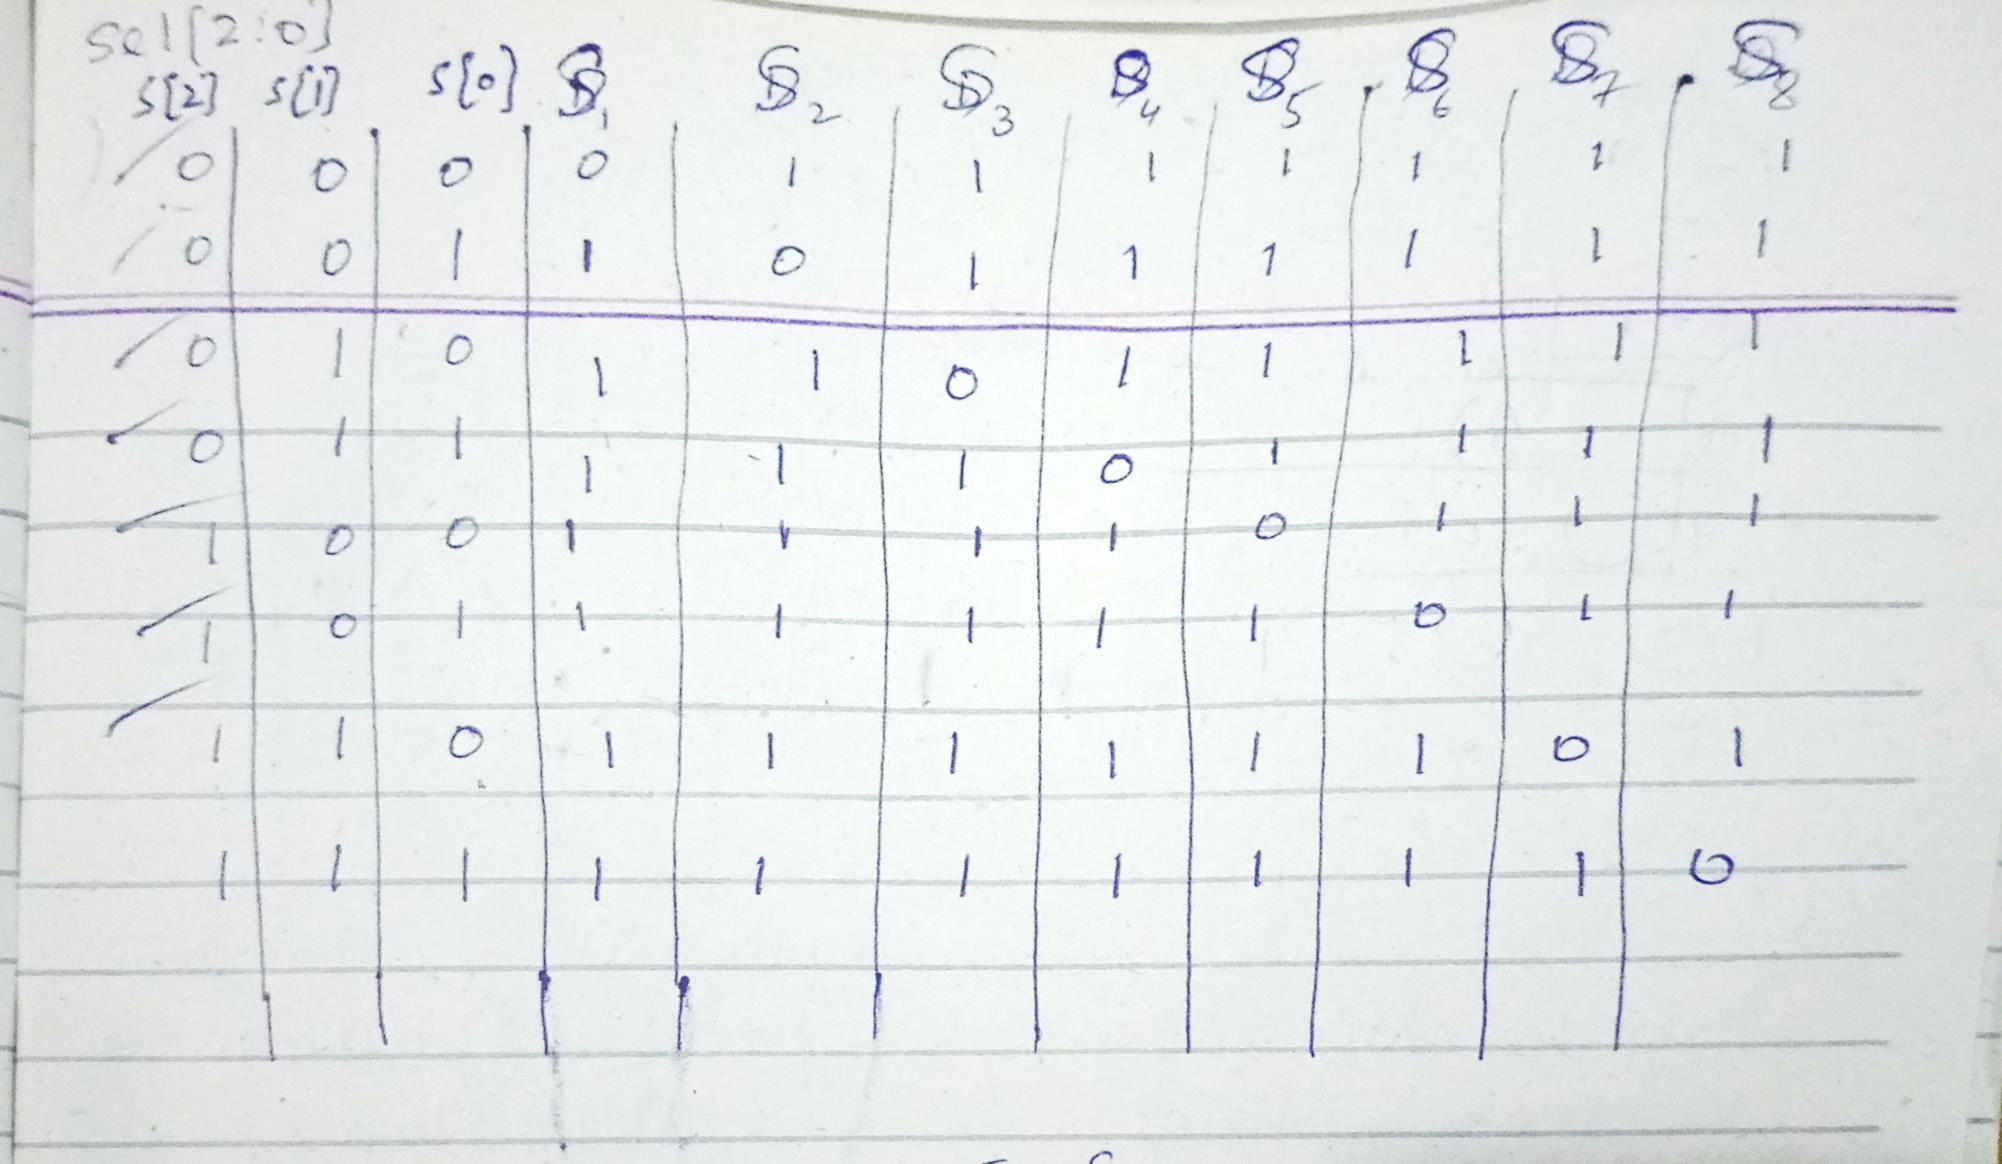 sel[2:0]
s[2] s[1] s[0] S1 S2 S3 S4 S5 S6 S7 S8
0 0 0 0 1 1 1 1 1 1 1
0 0 1 1 0 1 1 1 1 1 1
0 1 0 1 1 0 1 1 1 1 1
0 1 1 1 1 1 0 1 1 1 1
1 0 0 1 1 1 1 0 1 1 1
1 0 1 1 1 1 1 1 0 1 1
1 1 0 1 1 1 1 1 1 0 1
1 1 1 1 1 1 1 1 1 1 0